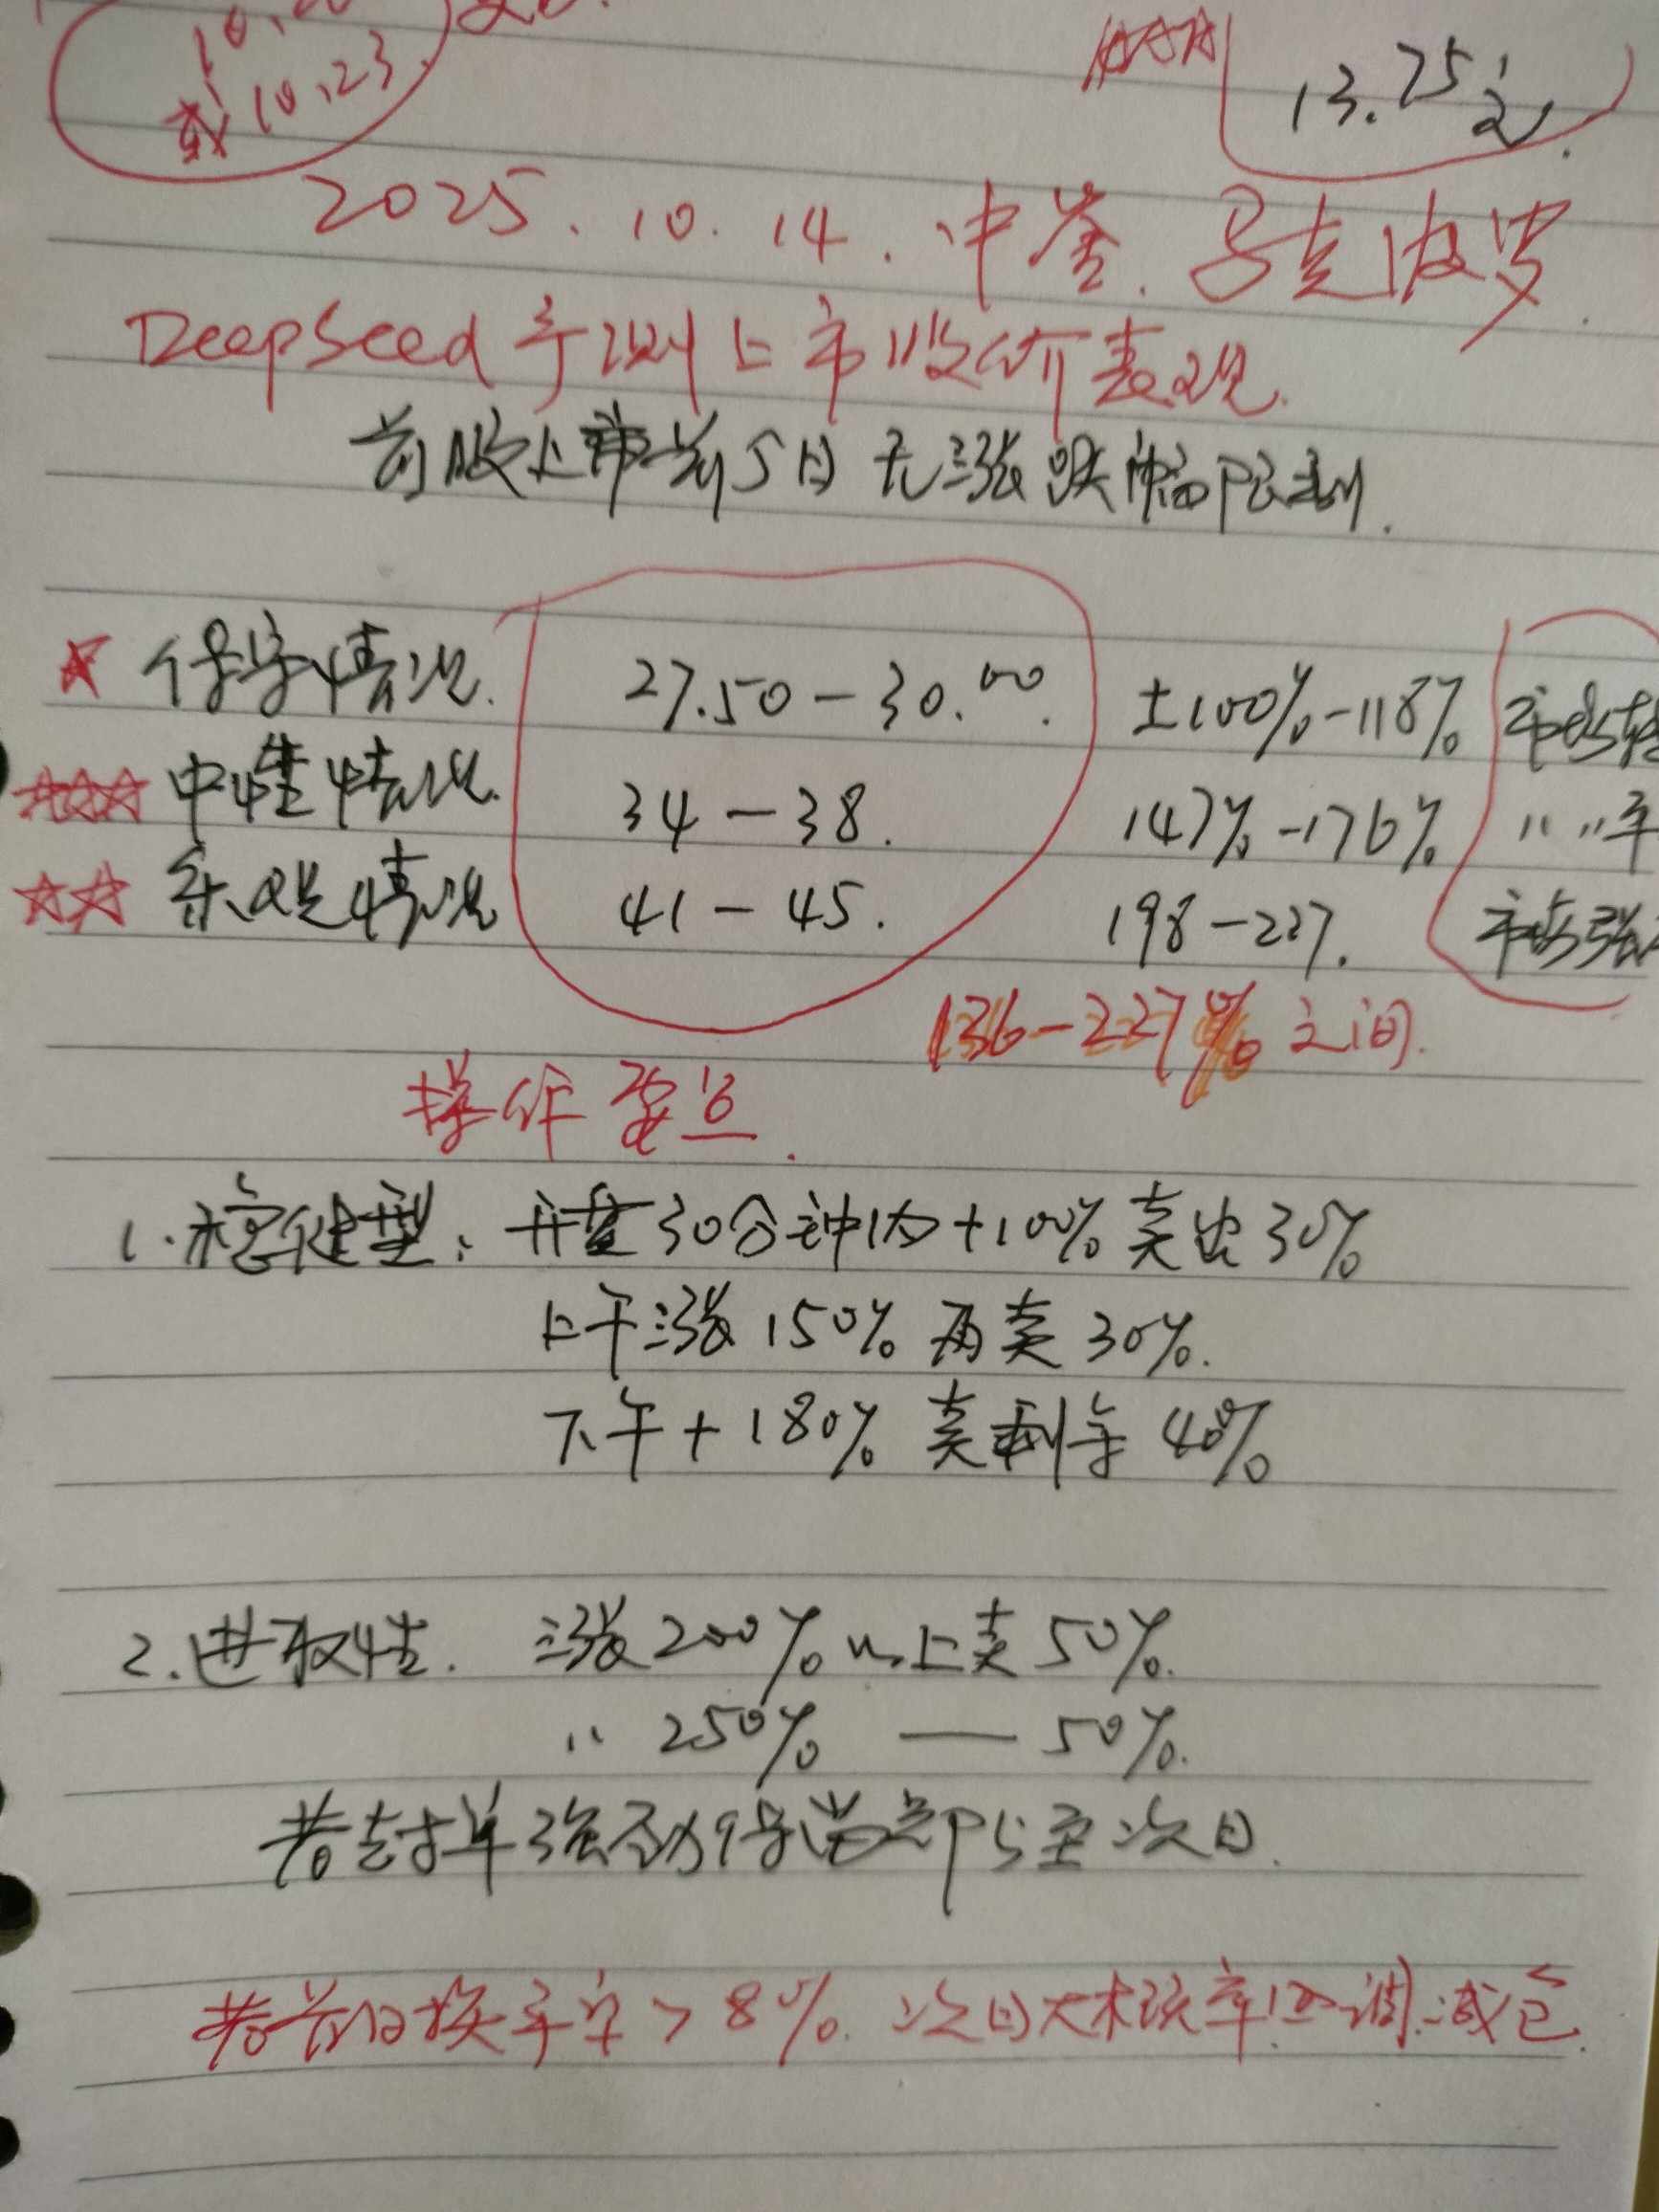 13.75元.
或10.23.
2025.10.14.中签.马克波罗.
DeepSeed予测上市收价表现.
前5日无涨跌幅限制.
保守情况. 27.50－30.00. ±100%－118% 市场
中性情况. 34－38. 147%－176% 〃〃平
乐观情况 41－45. 198－227. 市场强
136－227%之间.
操作要点.
1.稳健型: 开盘30分钟内+100%卖出30%
上午涨150%再卖30%.
下午+180%卖剩余40%
2.进取性. 涨200%以上卖50%.
〃 250% — 50%.
若封单强劲保留部分至次日.
若首日换手率>80%.次日大概率回调.减仓.